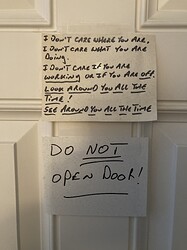 I DON'T CARE WHERE YOU ARE.
I DON'T CARE WHAT YOU ARE
DOING.
I DON'T CARE IF YOU ARE
WORKING OR IF YOU ARE OFF.
LOOK AROUND YOU ALL THE
TIME!
SEE AROUND YOU ALL THE TIME
DO NOT
OPEN DOOR!